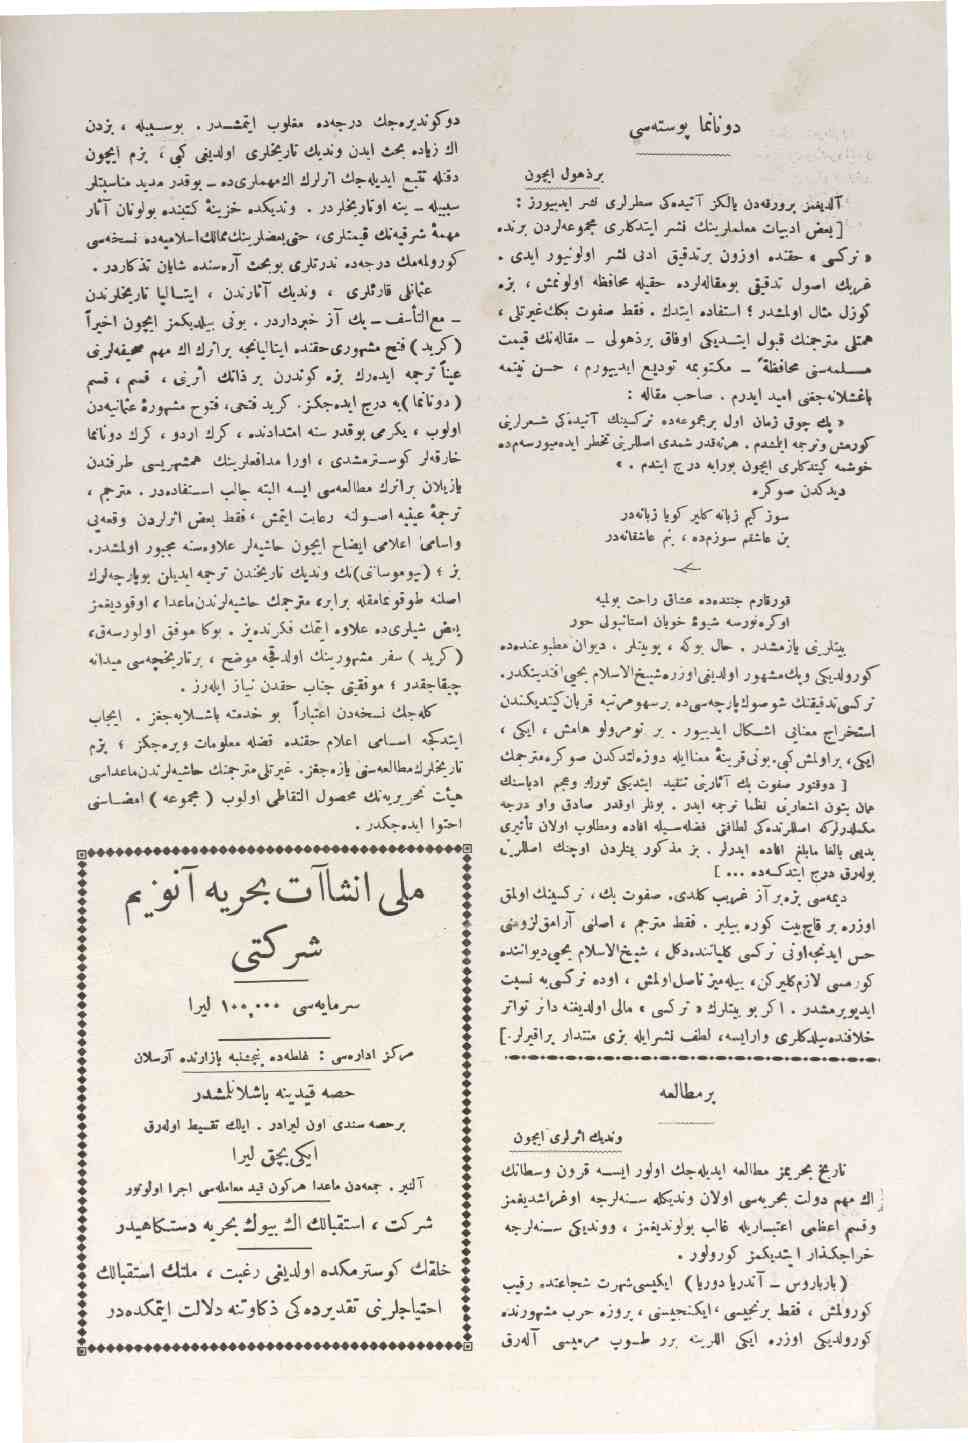 دونانما پوسته‌سی
برذهول ایچون
آلدیغمز برورقه‌دن یالكز آتیده‌كی سطرلری نشر ایدییورز :
[ بعض ادبیات معلملرینك نشر ایتدكلری مجموعه‌لردن برنده
« نركسی » حقنده اوزون برتدقیق ادبی نشر اولونیور ایدی .
غربك اصول تدقیقی بومقاله‌لرده حقیله محافظه اولونمش ، بزه
كوزل مثال اولمشدر ؛ استفاده ایتدك . فقط صفوت بك‌غیرتلی ،
همتلی مترجمنك قبول ایتـدیكی اوفاق برذهولی ــ مقاله‌نك قیمت
مسلمه‌سنی محافظةً ــ مكتوبمه تودیع ایدییورم ، حسن نیتمه
باغشلانه‌جغنی امید ایدرم . صاحب مقاله :
« پك چوق زمان اول برمجموعه‌ده نركسینك آتیده‌كی شعرلرینی
كورمش وترجمه ایلمشدم . هرنه‌قدر شمدی اصللرینی تخطر ایده‌میورسه‌م‌ده
خوشمه كیتدكلری ایچون بورایه درج ایتدم . »
دیدكدن صوكره
سوز كیم زبانه كلیر كویا زبانه‌در
بن عاشقم سوزم‌ده ، بنم عاشقانه‌در
قورقارم جنتده‌ده عشاق راحت بولمیه
اوكره‌نورسه شیوهٔ خوبان استانبولی حور
بیتلرینی یازمشدر . حال بوكه ، بوبیتلر . دیوان مطبوعنده‌ده
كورولدیكی وپك‌مشهور اولدیغی‌اوزره‌شیـخ‌الاسلام یحیی‌افندینكدر.
نركسی‌تدقیقنك شوصوك‌پارچه‌سی‌ده برسهومرتبه قربان‌كیتدیكندن
استخراج معنایی اشـكال ایدییور . بر نومرولو هامش ، ایكی ،
ایكی، براولمش‌كبی.بونی‌قرینهٔ معناایله دوزه‌لتدكدن صوكره‌مترجمك
[ دوقتور صفوت بك آثارینی تنقید ایتدیكی تورك وعجم ادباسنك
همان بتون اشعارینی نظما ترجمه ایدر . بونلر اوقدر صادق واو درجه
مكملدرلركه اصللرنده‌كی لطافتی فضله‌سـیله افاده ومطلوب اولان تأثیری
بدیعی بالغا مابلغ افاده ایدرلر . بز مذكور بیتلردن اوچنك اصللرینی
بوله‌رق درج ایتدكـه‌ده ... ]
دیمه‌سی بزه‌بر آز غریب كلدی. صفوت بك ، نركسینك اولمق
اوزره بر قاچ‌بیت كوره بیلیر . فقط مترجم ، اصلنی آرامق‌لزومنی
حس ایدنجه‌اونی نركسی كلیاتنده‌دكل ، شیخ‌الاسلام یحیی‌دیواننده
كورمسی لازم‌كلیركن، بیله‌میز ناصل‌اولمش ، اوده نركسی‌به نسبت
ایدیویرمشدر . اكر بو بیتلرك « نركسی » مالی اولدیغنه دائر تواتر
خلافنده‌بیلدكلری وارایسه، لطف نشرایله بزی منتدار براقیرلر.]
برمطالعه
وندیك اثرلری ایچون
تاریخ بحریمز مطالعه ایدیله‌جك اولور ایسـه قرون وسطانك
اك مهم دولت بحریه‌سی اولان وندیكله سـنه‌لرجه اوغراشدیغمز
وقسم اعظمی اعتبـاریله غالب بولوندیغمز ، ووندیكی سـنه‌لرجه
خراجكـذار ایتدیكمز كورولور .
(بارباروس ــ آندریا دوریا) ایكیسی‌شهرت شجاعتده رقیب
كورولمش ، فقط برنجیسی ، ایكنجیسنی ، پروزه حرب مشهورنده
كورولدیكی اوزره ایكی اللرینه برر طـوپ مرمیسی آله‌رق
دوكوندیره‌جك درجه‌ده مغلوب ایتمشـدر . بوسـیبله ، بزدن
اك زیاده بحث ایدن وندیك تاریخلری اولدیغی كبی ، بزم ایچون
دقتله تتبع ایدیله‌جك اثرلرك اك‌مهملری‌ده ــ بوقدر مدید مناسبتلر
سببیله ــ ینه اوتاریخلردر . وندیكده خزینهٔ كتبنده بولونان آثار
مهمهٔ شرقیه‌نك قیمتلری، حتی‌بعضلرینك‌ممالك‌اسلامیه‌ده نسـخه‌سی
كورولمه‌مك درجه‌ده ندرتلری بوبحث آره‌سنده شایان تذكاردر .
عثمانلی قارئلری ، وندیك آثارندن ، ایتـالیا تاریخلرندن
ــ مع‌التأسف ــ پك آز خبرداردر . بونی بیلدیكمز ایچون اخیراً
( كرید ) فتح مشهوری‌حقنده ایتالیانجه براثرك اك مهم صحیفه‌لرینی
عیناً ترجمه ایده‌رك بزه كوندرن بر ذاتك اثرینی ، قسم ، قسم
( دونانما )یه درج ایده‌جكز. كرید فتحی، فتوح مشهورهٔ عثمانیه‌دن
اولوب ، یكرمی بوقدر سنه امتدادنده ، كرك اردو ، كرك دونانما
خارقه‌لر كوسـترمشدی ، اورا مدافعلرینك همشهریسی طرفندن
یازیلان براثرك مطالعه‌سی ایسه البته جالب اسـتفاده‌در . مترجم ،
ترجمهٔ عینیه اصـولنه رعایت ایتمش ، فقط بعض اثرلردن وقعه‌یی
واسامی‌ٔ اعلامی ایضاح ایچون حاشیه‌لر علاوه‌سنه مجبور اولمشدر.
بز ؛ (نیوموسانی)نك وندیك تاریخندن ترجمه ایدیلن بوپارچه‌لرك
اصلنه طوقونمامقله برابر، مترجمك حاشیه‌لرندن‌ماعدا ، اوقودیغمز
بعض شیلری‌ده علاوه ایتمك فكرنده‌یز . بوكا موفق اولورسه‌ق،
( كرید ) سفر مشهورینك اولدقجه موضح ، برتاریخچه‌سی میدانه
چیقاجقدر ؛ موفقیتی جناب حقدن نیاز ایله‌رز .
كله‌جك نسـخه‌دن اعتباراً بو خدمته باشـلایه‌جغز . ایجاب
ایتدكجه اسـامی اعلام حقنده فضله معلومات ویره‌جكز ؛ بزم
تاریخلرك‌مطالعه‌سنی یازه‌جغز. غیرتلی‌مترجمنك حاشیه‌لرندن‌ماعداسی
هیأت تحریریه‌نك محصول التقاطی اولوب ( مجموعه ) امضـاسنی
احتوا ایده‌جكدر .
ملی انشاآت بحریه آنونیم
شركتی
سرمایه‌سی ۱۰۰,۰۰۰ لیرا
مركز اداره‌سی : غلطه‌ده پنجشنبه پازارنده آرسلان
حصه قیدینه باشلانلمشدر
برحصه سندی اون لیرادر . ایلك تقسیط اوله‌رق
ایكی‌بچق لیرا
آلنیر . جمعه‌دن ماعدا هركون قید معامله‌سی اجرا اولونور
شركت ، استقبالك اك بیوك بحریه دستـكاهیدر
خلقك كوسترمكده اولدیغی رغبت ، ملتك استقبالك
احتیاجلرینی تقدیرده‌كی ذكاوتنه دلالت ایتمكده‌در